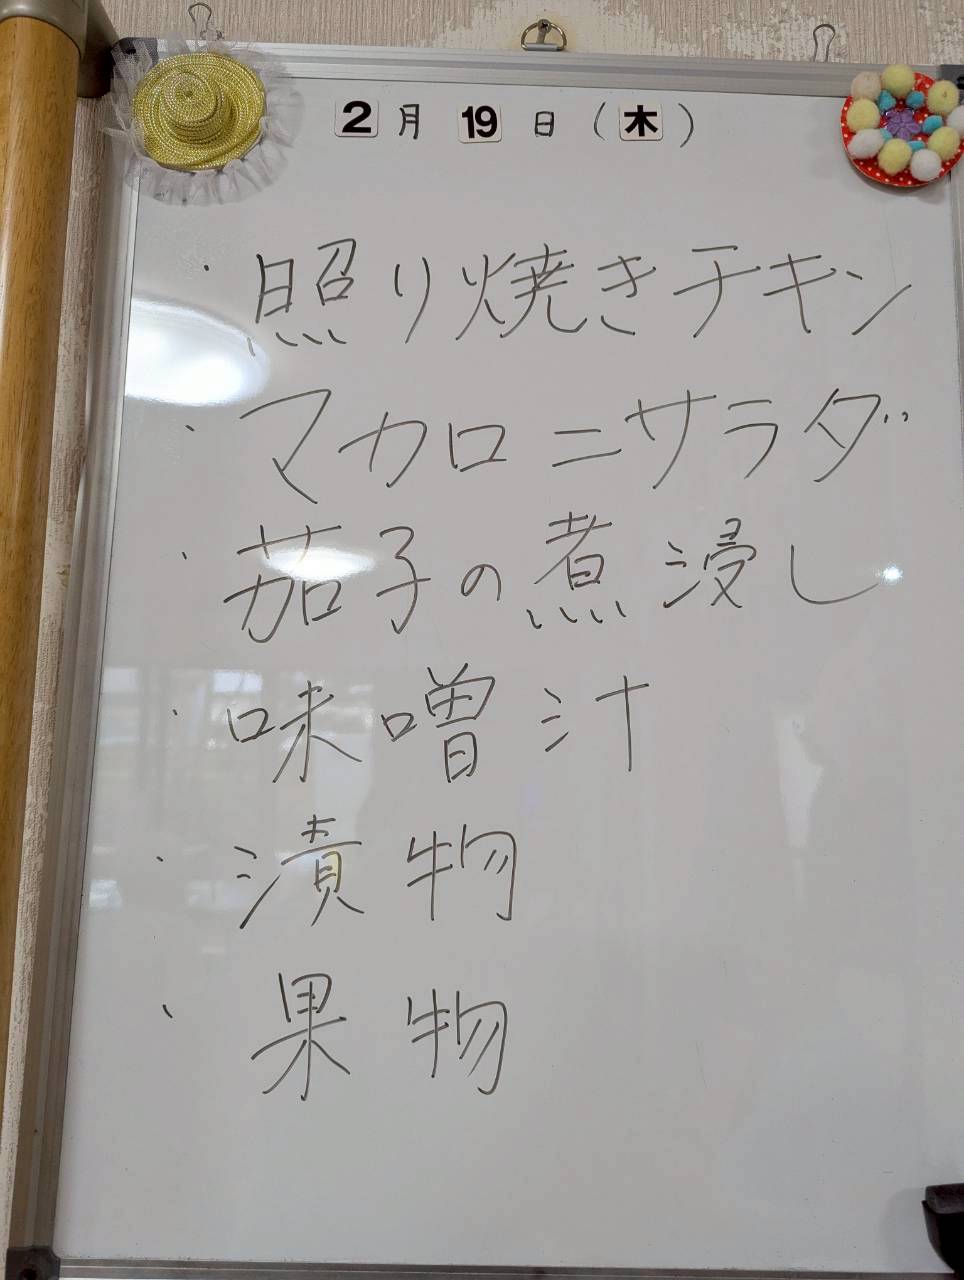 2月19日(木)
・照り焼きチキン
・マカロニサラダ
・茄子の煮浸し
・味噌汁
・漬物
・果物